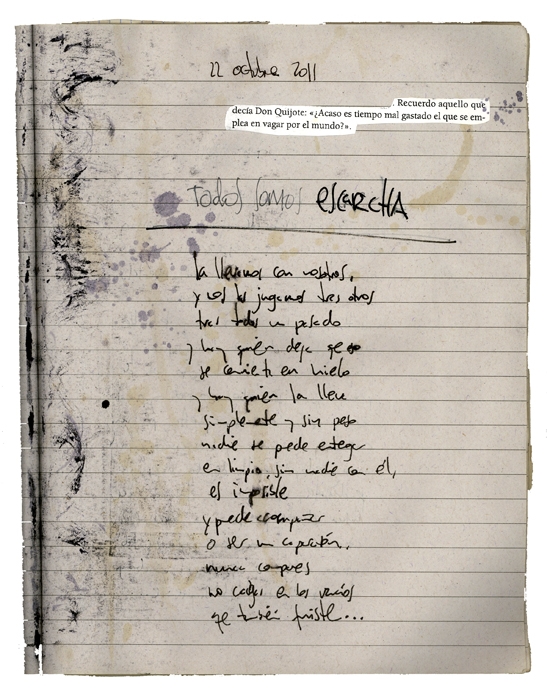 22 octubre 2011
Recuerdo aquello que
decía Don Quijote: «¿Acaso es tiempo mal gastado el que se em-
plea en vagar por el mundo?».
todos somos escarcha
la llevamos con nosotros,
y nos la jugamos tras otros
tras todos un pasado
y hay quien deja que
se convierta en hielo
y hay quien la lleva
simplemente y sin peso
nadie se puede entregar
en limpio, sin nadie con él,
es imposible
y puede
o ser un caparazón.
nunca compares
no caigas en los vacíos
que también fuiste...